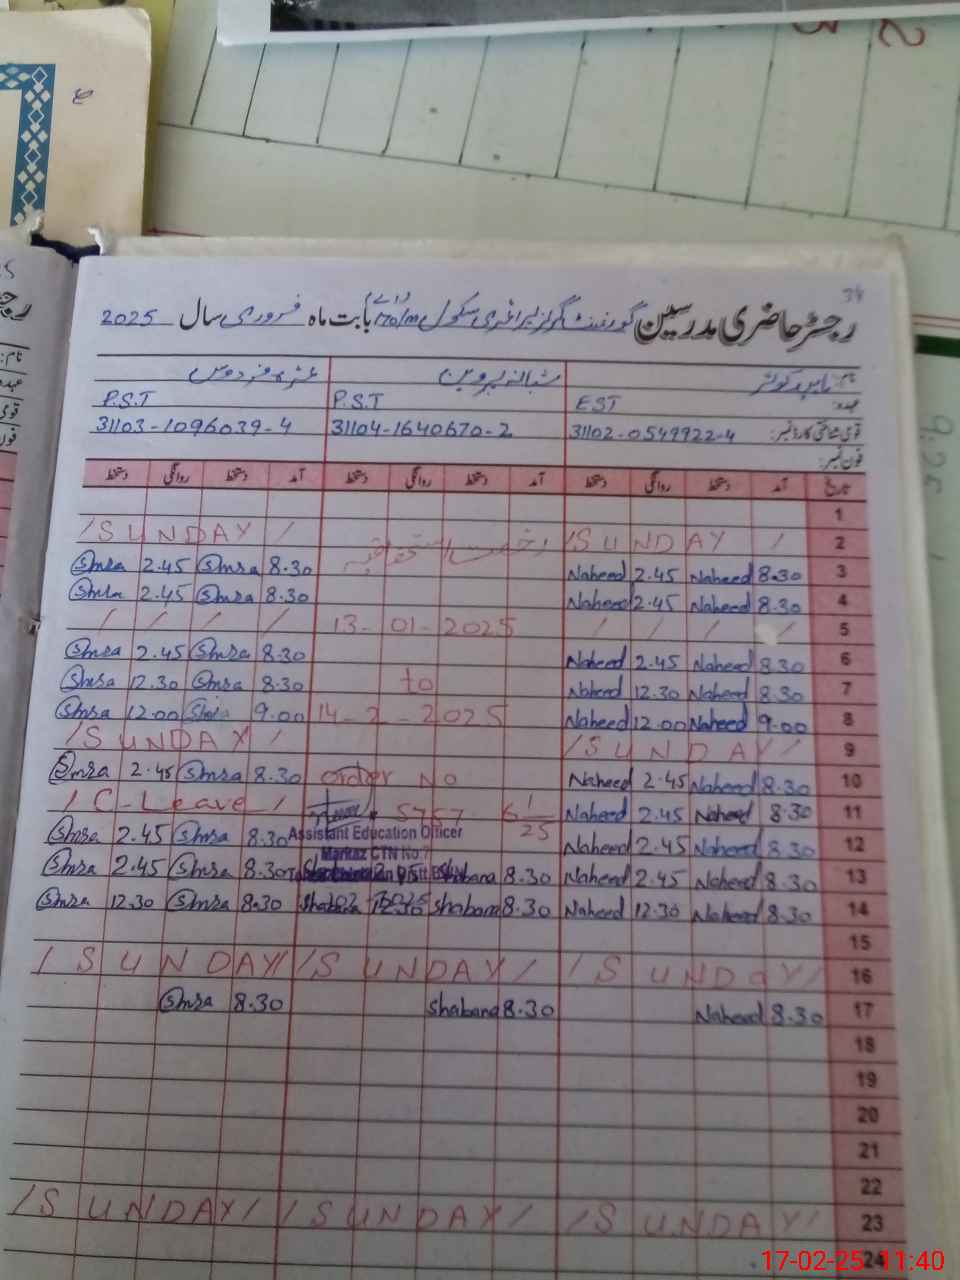 رجسٹر حاضری مدرسین گورنمنٹ گرلز پرائمری سکول بابت ماہ فروری سال 2025
نام: شبانہ پروین
عہدہ: EST P.S.T P.S.T
قومی شناختی کارڈ نمبر: 31102-0549922-4 31104-1640670-2 31103-1096039-4
فون نمبر:
تاریخ آمد دستخط روانگی دستخط آمد دستخط روانگی دستخط آمد دستخط روانگی دستخط
1
/SUNDAY/ /SUNDAY/ 2
Smra 2.45 Smra 8.30 Naheed 2.45 Naheed 8.30 3
Smra 2.45 Smra 8.30 Naheed 2.45 Naheed 8.30 4
/ / / / 13-01-2025 / / / / 5
Smra 2.45 Smra 8.30 Naheed 2.45 Naheed 8.30 6
Smra 12.30 Smra 8.30 to Naheed 12.30 Naheed 8.30 7
Smra 12.00 Smra 9.00 14-2-2025 Naheed 12.00 Naheed 9.00 8
/SUNDAY/ /SUNDAY/ 9
Smra 2.45 Smra 8.30 order No Naheed 2.45 Naheed 8.30 10
/C-Leave/ 5757 Naheed 2.45 Naheed 8.30 11
Assistant Education Officer
Markaz CTN No.7
Smra 2.45 Smra 8.30 Naheed 2.45 Naheed 8.30 12
Smra 2.45 Smra 8.30 Shabana 8.30 Naheed 2.45 Naheed 8.30 13
Smra 12.30 Smra 8.30 Shabana 12.30 Shabana 8.30 Naheed 12.30 Naheed 8.30 14
15
/SUNDAY/ /SUNDAY/ /SUNDAY/ 16
Smra 8.30 Shabana 8.30 Naheed 8.30 17
18
19
20
21
22
/SUNDAY/ /SUNDAY/ /SUNDAY/ 23
24
17-02-25 11:40